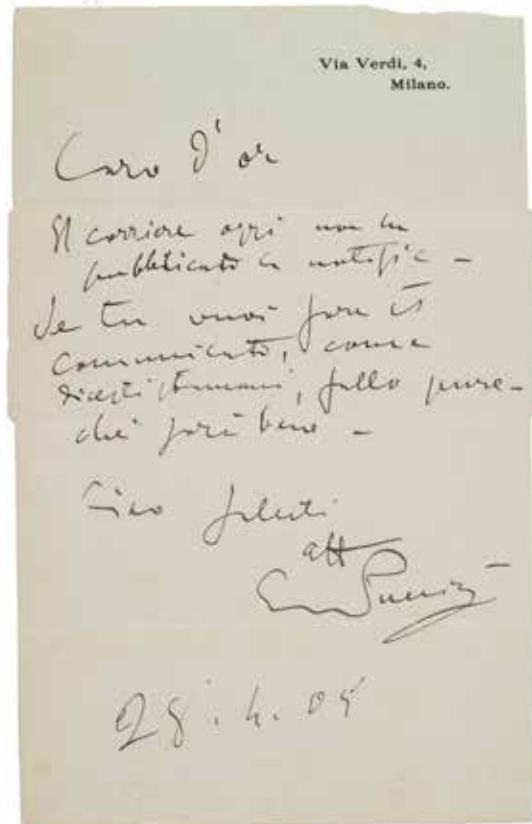 Via Verdi, 4,
Milano.
Caro D'or
Il corriere oggi non ha
pubblicato la notific -
Se tu vuoi fare il
comunicato, come
dicesti stamani, fallo pure -
chè farà bene -
Ciao saluti
aff
Puccini
28.4.05